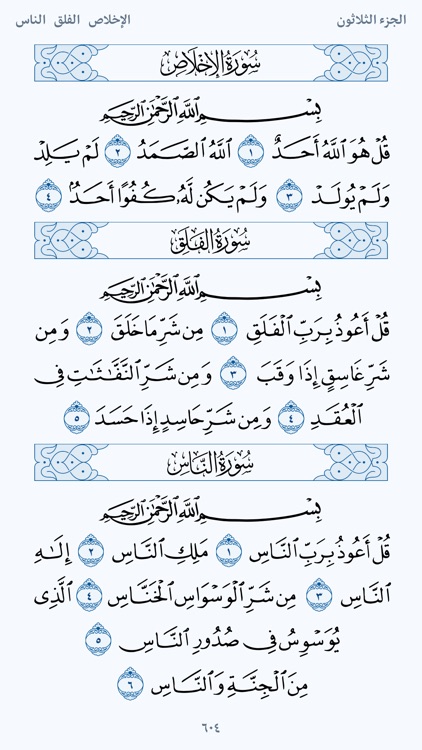 الجزء الثلاثون
الإخلاص الفلق الناس
سُورَةُ الإِخْلَاصِ
بِسْمِ ٱللَّهِ ٱلرَّحْمَٰنِ ٱلرَّحِيمِ
قُلْ هُوَ ٱللَّهُ أَحَدٌ ١ ٱللَّهُ ٱلصَّمَدُ ٢ لَمْ يَلِدْ
وَلَمْ يُولَدْ ٣ وَلَمْ يَكُن لَّهُۥ كُفُوًا أَحَدٌۢ ٤
سُورَةُ الفَلَقِ
بِسْمِ ٱللَّهِ ٱلرَّحْمَٰنِ ٱلرَّحِيمِ
قُلْ أَعُوذُ بِرَبِّ ٱلْفَلَقِ ١ مِن شَرِّ مَا خَلَقَ ٢ وَمِن
شَرِّ غَاسِقٍ إِذَا وَقَبَ ٣ وَمِن شَرِّ ٱلنَّفَّٰثَٰتِ فِى
ٱلْعُقَدِ ٤ وَمِن شَرِّ حَاسِدٍ إِذَا حَسَدَ ٥
سُورَةُ النَّاسِ
بِسْمِ ٱللَّهِ ٱلرَّحْمَٰنِ ٱلرَّحِيمِ
قُلْ أَعُوذُ بِرَبِّ ٱلنَّاسِ ١ مَلِكِ ٱلنَّاسِ ٢ إِلَٰهِ
ٱلنَّاسِ ٣ مِن شَرِّ ٱلْوَسْوَاسِ ٱلْخَنَّاسِ ٤ ٱلَّذِى
يُوَسْوِسُ فِى صُدُورِ ٱلنَّاسِ ٥
مِنَ ٱلْجِنَّةِ وَٱلنَّاسِ ٦
٦٠٤